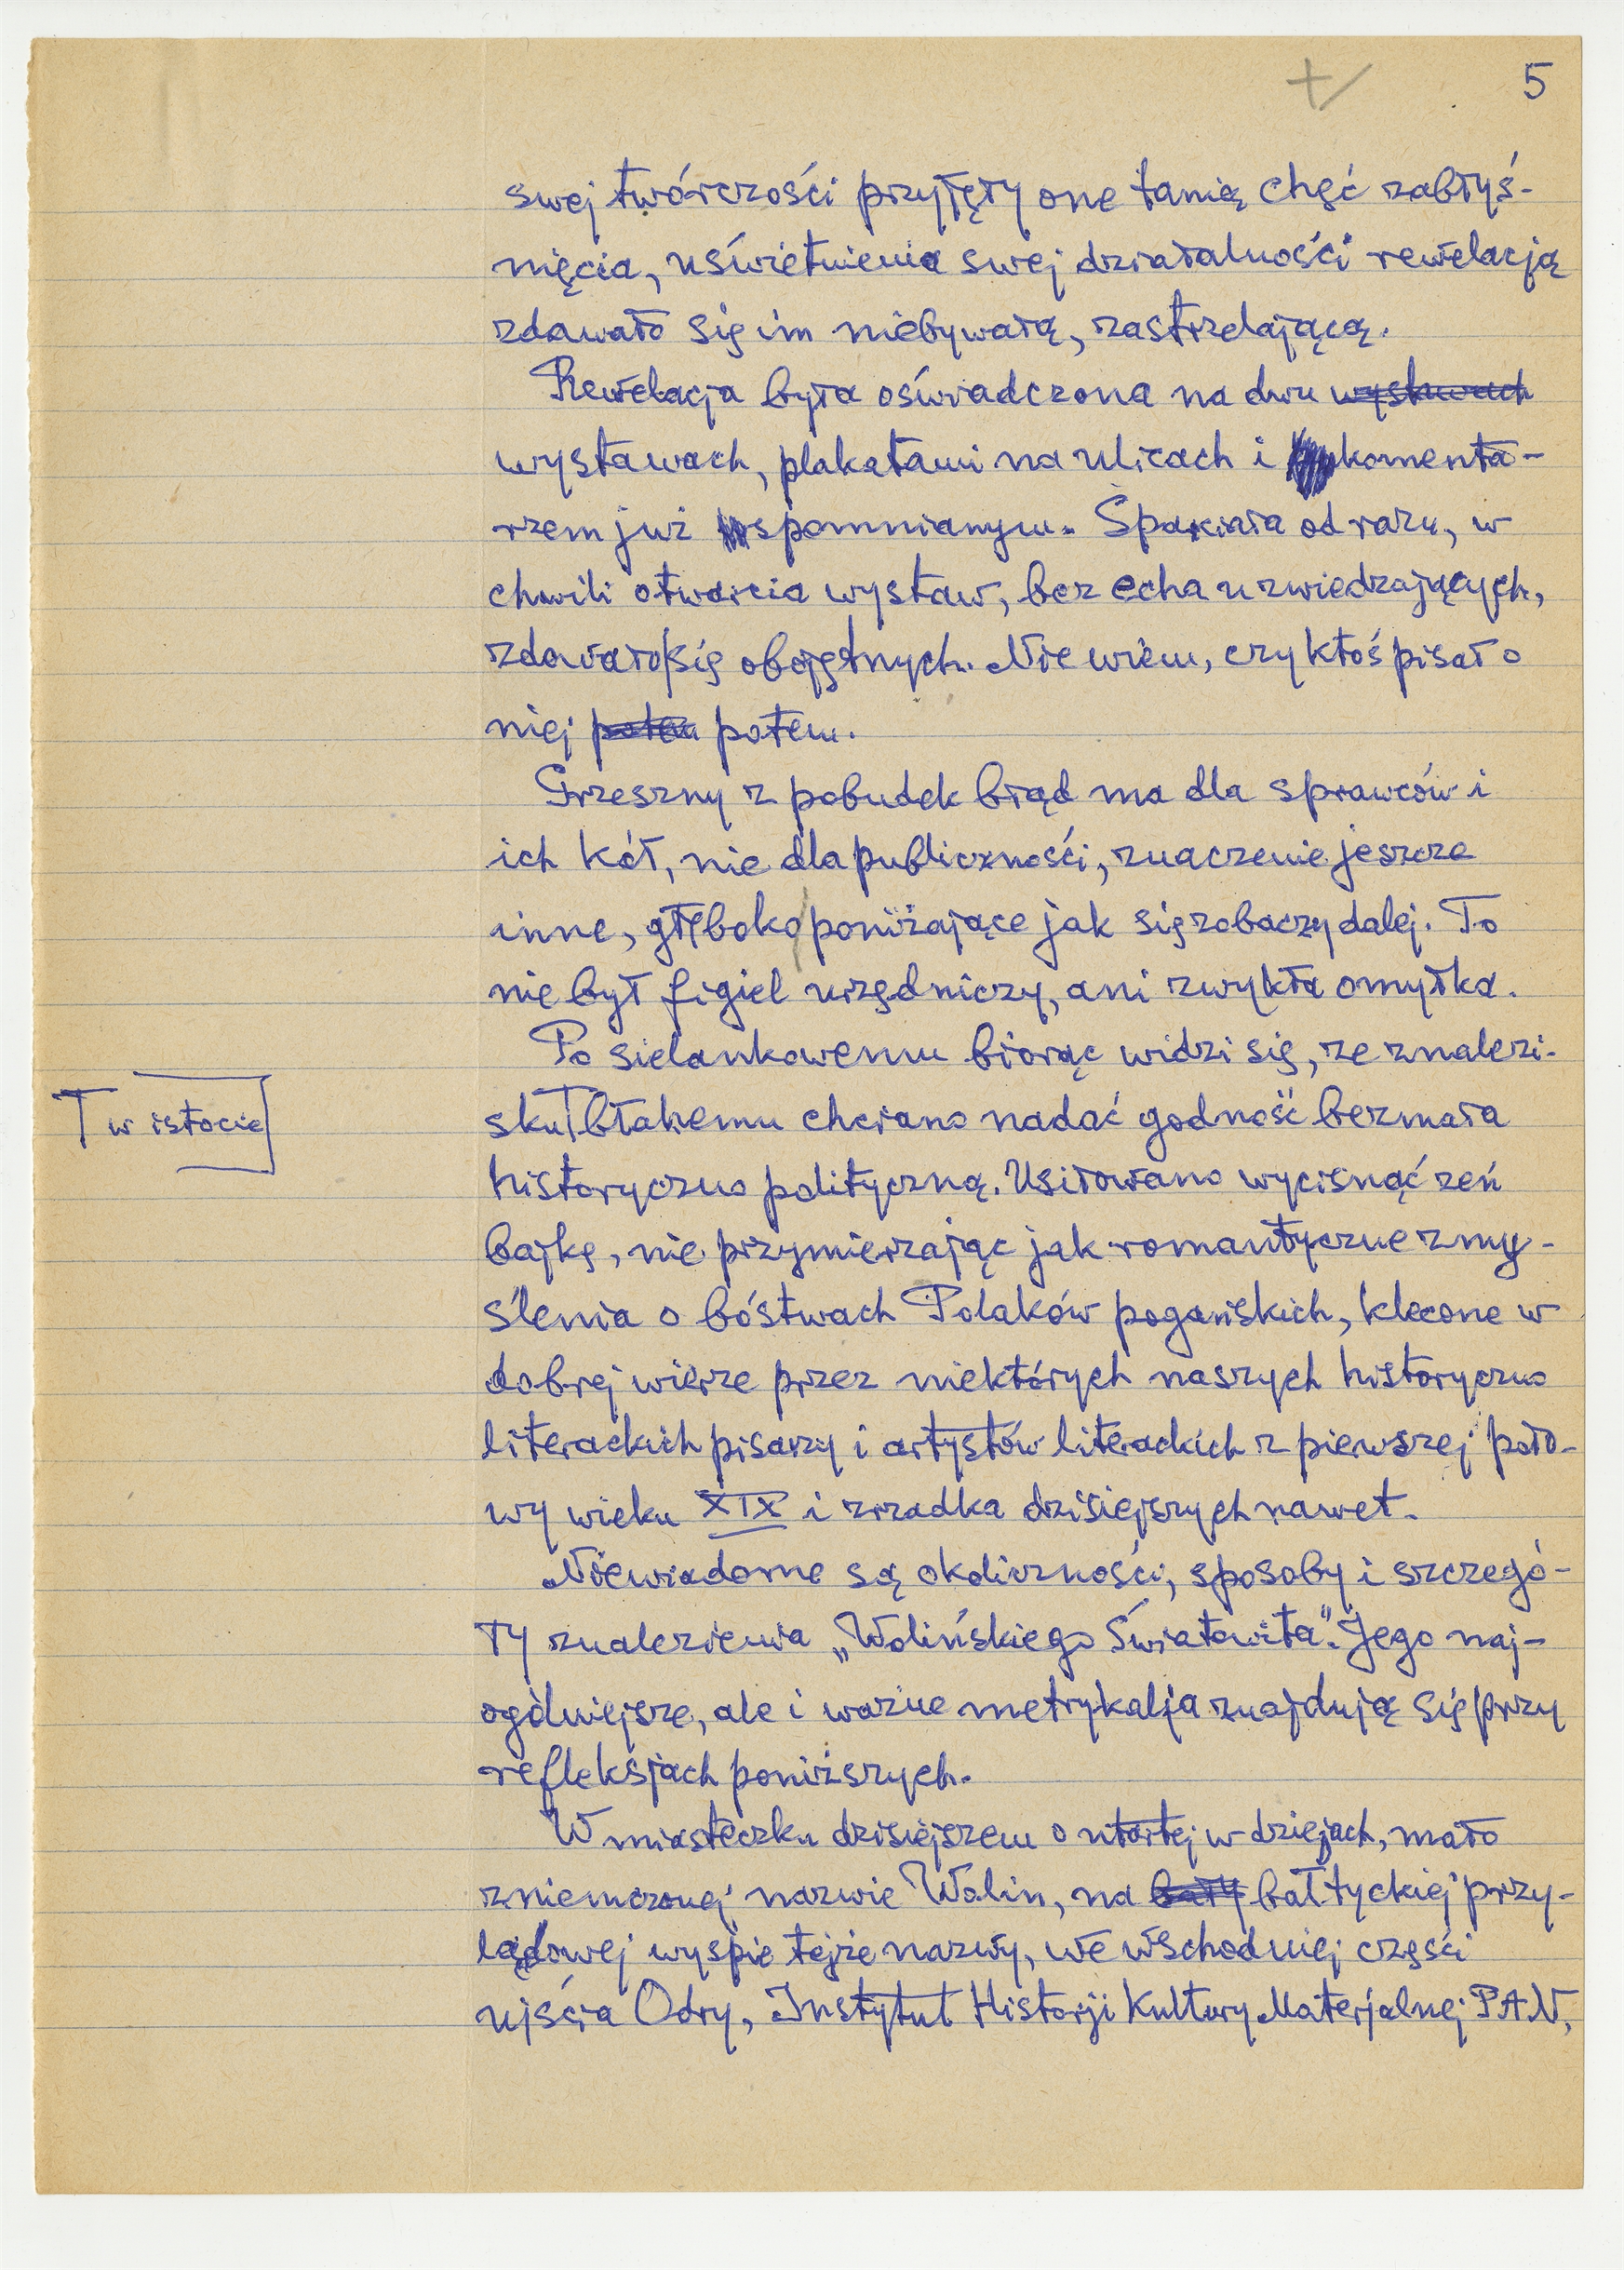 5
swej twórczości przyjęły one tanią chęć zabłyś-
nięcia, uświetnienia swej działalności rewelacją
zdawało się im niebywałą, zastrzelającą.
Rewelacja była oświadczona na dwu wystawach
wystawach, plakatami na ulicach i komenta-
rzem już wspomnianym. Spaliła od razu, w
chwili otwarcia wystaw, bez echa u zwiedzających,
zdawało się obojętnych. Nie wiem, czy ktoś pisał o
niej potem potem.
Grzeszny z pobudek błąd ma dla sprawców i
ich kół, nie dla publiczności, znaczenie jeszcze
inne, głęboko poniżające jak się zobaczy dalej. To
nie był figiel urzędniczy, ani zwykła omyłka.
Po sielankowemu biorąc widzi się, ze znalezi-
T w istocie
sku T błahemu chciano nadać godność bezmała
historyczno polityczną. Usiłowano wycisnąć zeń
bajkę, nie przymierzając jak romantyczne zmy-
ślenia o bóstwach Polaków pogańskich, klecone w
dobrej wierze przez niektórych naszych historyczno
literackich pisarzy i artystów literackich z pierwszej poło-
wy wieku XIX i zrzadka dzisiejszych nawet.
Niewiadome są okoliczności, sposoby i szczegó-
ły znalezienia „Wolińskiego Światowita". Jego naj-
ogólniejsze, ale i ważne metrykalja znajdują się przy
refleksjach poniższych.
W miasteczku dzisiejszem o utartej w dziejach, mało
zniemczonej nazwie Wolin, na bałty bałtyckiej przy-
lądowej wyspie tejże nazwy, we wschodniej części
ujścia Odry, Instytut Historji Kultury Materjalnej PAN,